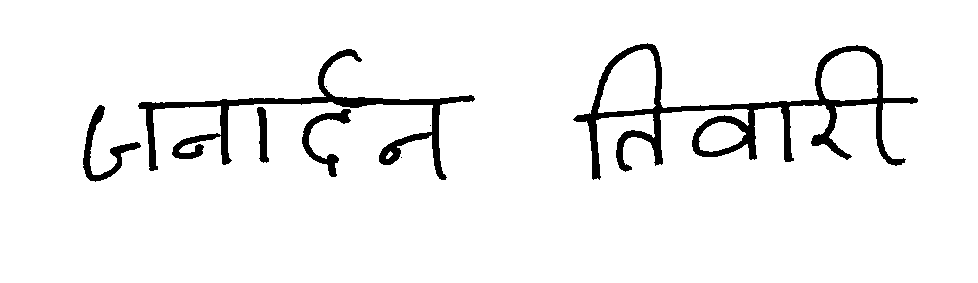 जनार्दन तिवारी